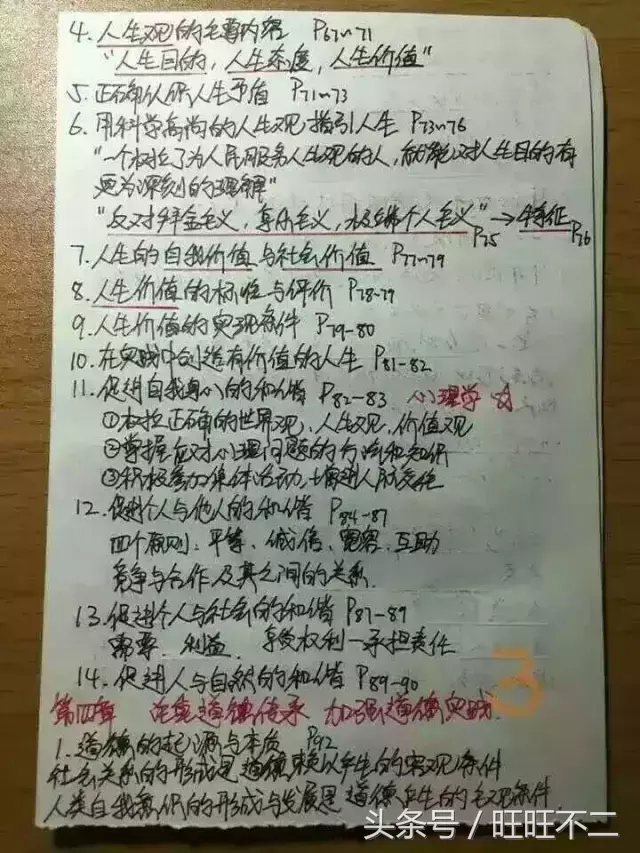 4. 人生观的主要内容 P67~71
"人生目的, 人生态度, 人生价值"
5. 正确认识人生矛盾 P71~73
6. 用科学高尚的人生观指引人生 P73~76
"一个树立了为人民服务人生观的人, 就能对人生目的有
更为深刻的理解"
"反对拜金主义, 享乐主义, 极端个人主义" P75 → 特征 P76
7. 人生的自我价值与社会价值 P77~79
8. 人生价值的标准与评价 P78-79
9. 人生价值的实现条件 P79-80
10. 在实践中创造有价值的人生 P81-82
11. 促进自我身心的和谐 P82-83 心理学 ☆
①树立正确的世界观、人生观、价值观
②掌握应对心理问题的方法和知识
③积极参加集体活动, 增进人际交往
12. 促进个人与他人的和谐 P84-87
四个原则: 平等、诚信、宽容、互助
竞争与合作及其之间的关系.
13. 促进个人与社会的和谐 P87-89
需要、利益、享受权利—承担责任
14. 促进人与自然的和谐 P89-90
第四章 注重道德传承 加强道德实践
1. 道德的起源与本质 P92
社会关系的形成是道德赖以产生的客观条件
人类自我意识的形成与发展是道德产生的主观条件.
3
头条号／旺旺不二